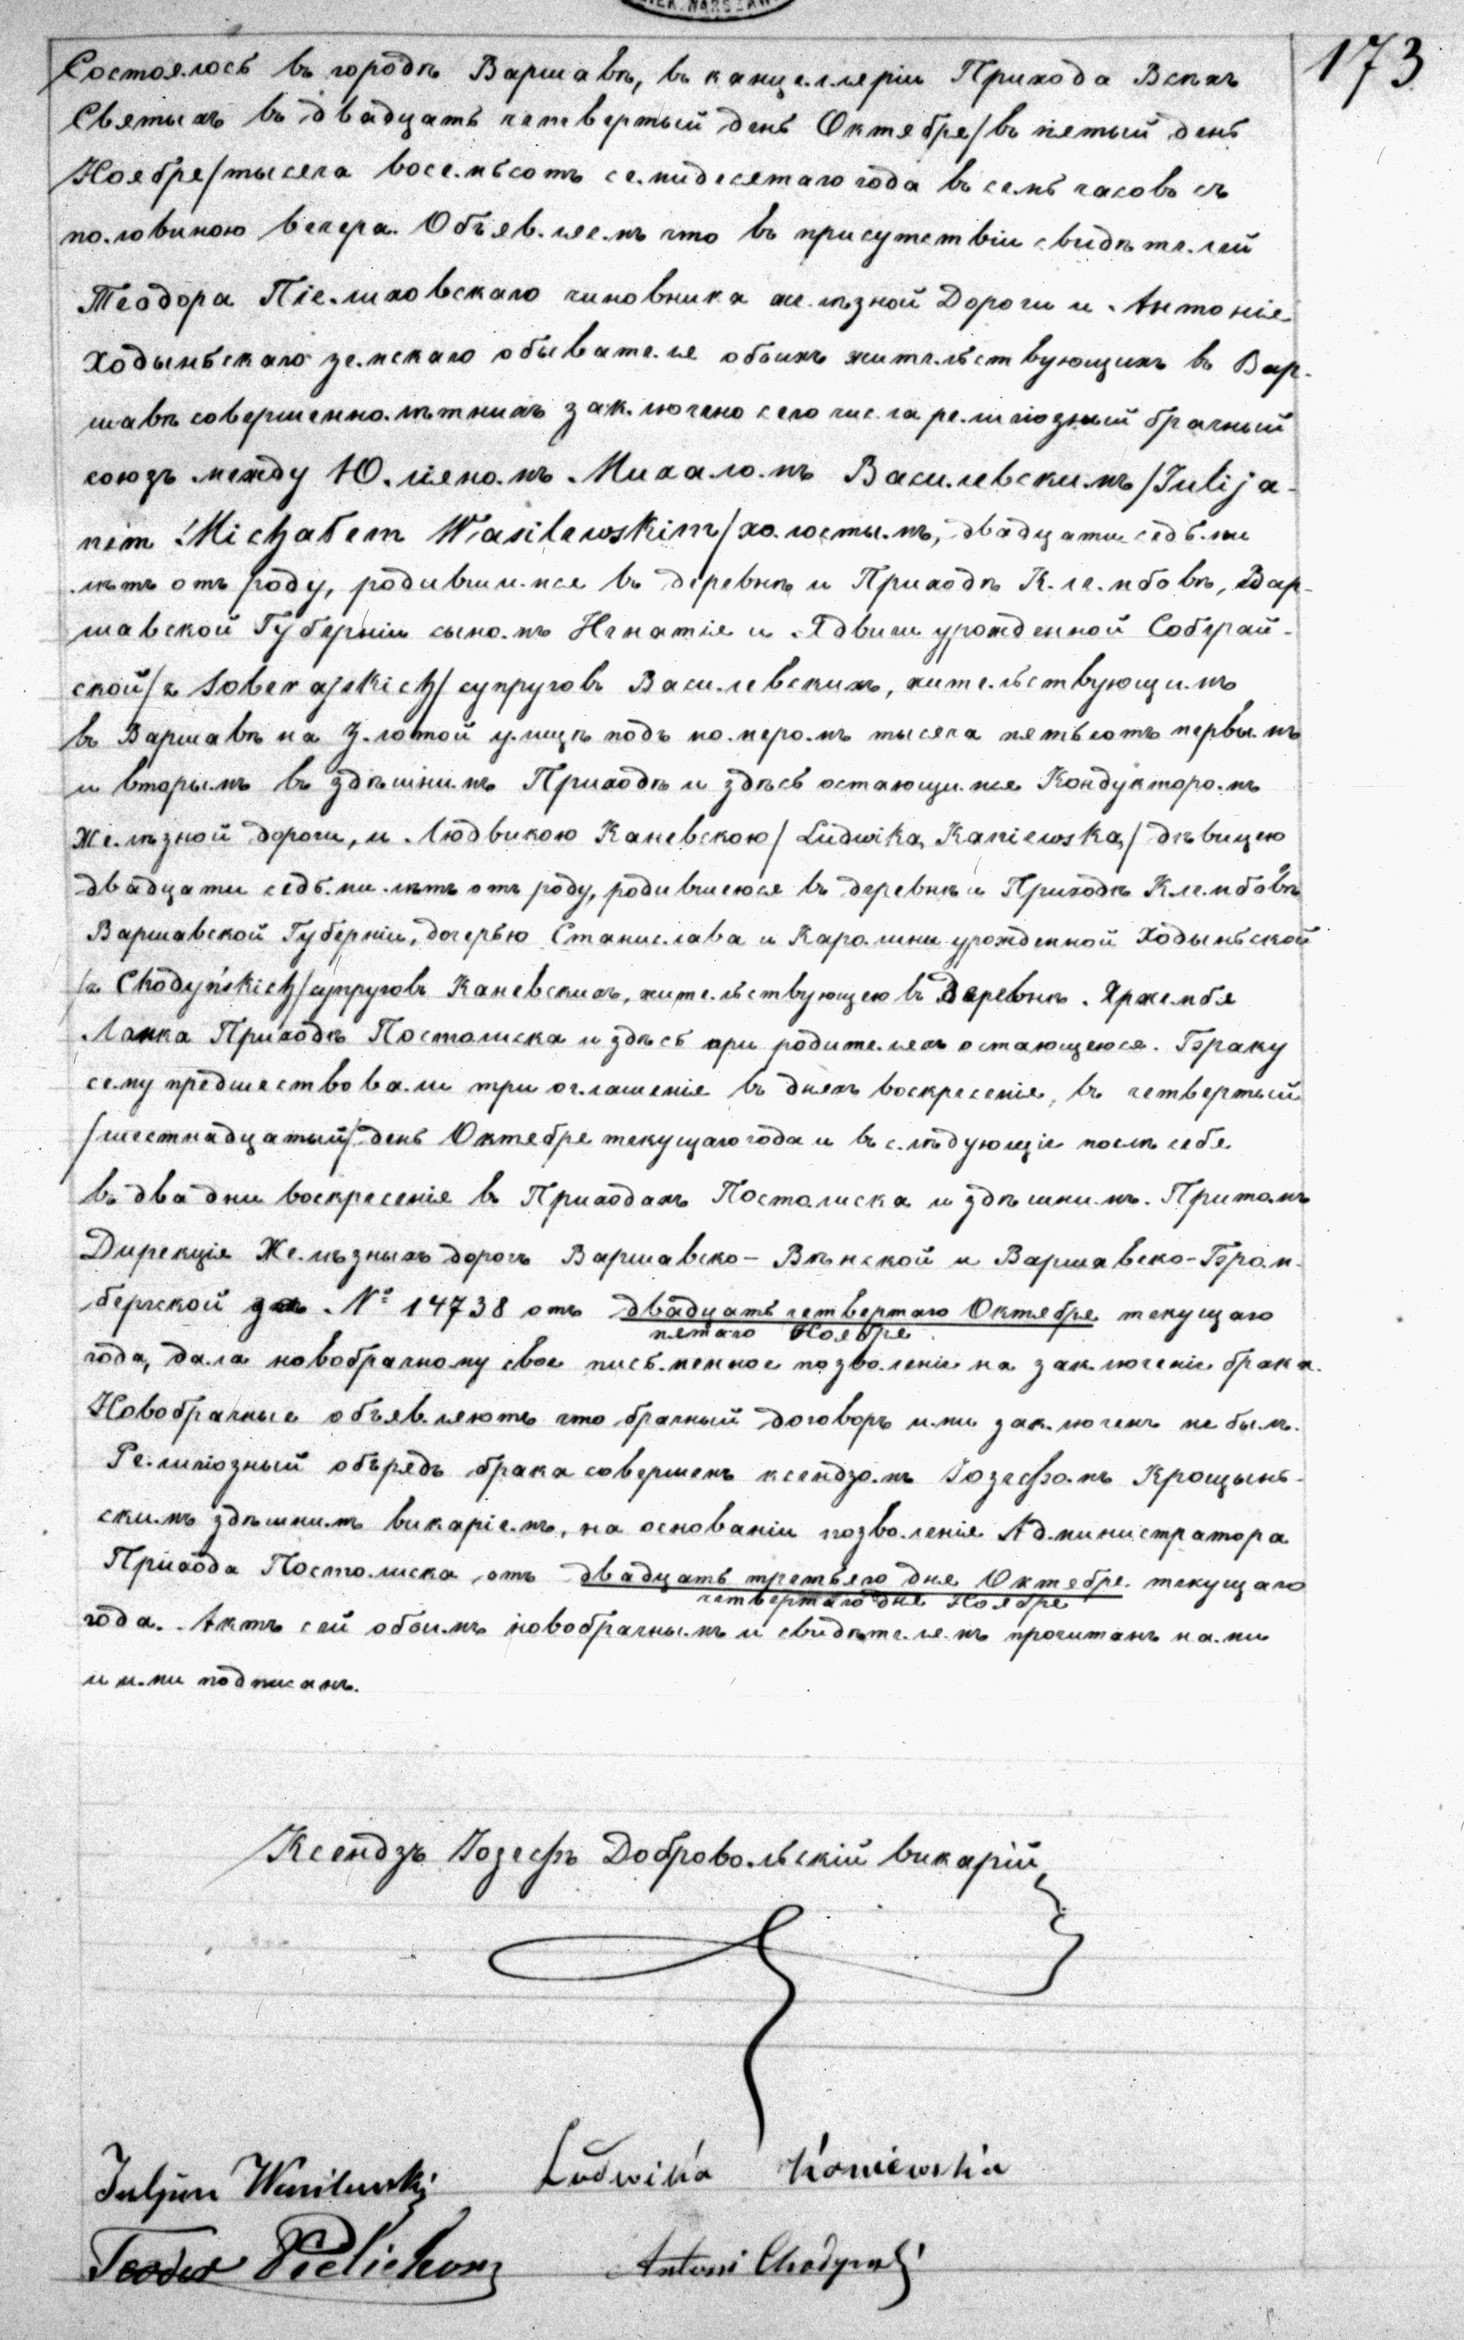 173
Состоялось въ городѣ Варшавѣ, въ канцелляріи Прихода Всѣхъ
Святыхъ въ двадцать четвертый день Октября/въ пятый день
Ноября/тысяча восемьсотъ семидесятаго года въ семь часовъ съ
половиною вечера. Объявляемъ что въ присутствіи свидѣтелей
Теодора Піелиховскаго чиновника желѣзной Дороги и Антонія
Ходыньскаго земскаго обывателя обоихъ жительствующихъ въ Вар-
шавѣ совершеннолѣтнихъ заключено сего числа религіозный брачный
союзъ между Юліяномъ Михаломъ Василевскимъ/Julija-
nem Michałem Wasilewskim/холостымъ, двадцати седьми
лѣтъ отъ роду, родившимся въ деревнѣ и Приходѣ Клембовѣ, Вар-
шавской Губерніи сыномъ Игнатія и Ядвиги урожденной Соберай-
ской/z Soberajskich/супруговъ Василевскихъ, жительствующимъ
въ Варшавѣ на Злотой улицѣ подъ номеромъ тысяча пятьсотъ первымъ
и вторымъ въ здѣшнимъ Приходѣ и здѣсь остающимся Кондукторомъ
Желѣзной дороги, и Людвикою Каневскою/Ludwiką Kaniewską/дѣвицею
двадцати седьми лѣтъ отъ роду, родившеюся въ деревнѣ и Приходѣ Клембовѣ
Варшавской Губерніи, дочерью Станислава и Каролины урожденной Ходыньской
/z Chodyńskich/супруговъ Каневскихъ, жительствующею въ Деревнѣ Яржембя
Лонка Приходѣ Постолиска и здѣсь при родителяхъ остающеюся. Браку
сему предшествовали три оглашенія въ дняхъ воскресенія, въ четвертый
/шестнадцатый/день Октября текущаго года и въ слѣдующіе послѣ себя
въ два дни воскресенія въ Приходахъ Постолиска и здѣшнимъ. Притомъ
Дирекція Желѣзныхъ дорогъ Варшавско-Вѣнской и Варшавско-Бром-
бергской за № 14738 отъ двадцать четвертаго Октября текущаго
пятаго Ноября
года, дала новобрачному свое письменное позволеніе на заключеніе брака.
Новобрачные объявляютъ что брачный договоръ ими заключенъ не былъ.
Религіозный обърядъ брака совершенъ ксендзомъ Іозефомъ Крощынь-
скимъ здѣшнимъ викаріемъ, на основаніи позволенія Администратора
Прихода Постолиска отъ двадцать третьяго дня Октября текущаго
четвертаго дня Ноября
года. Актъ сей обоимъ новобрачнымъ и свидѣтелямъ прочитанъ нами
и ими подписанъ.
Ксендзъ Іозефъ Добровольскій викарій
Juljan Wasilewski Ludwika Kaniewska
Teodor Pielichowski Antoni Chodyński